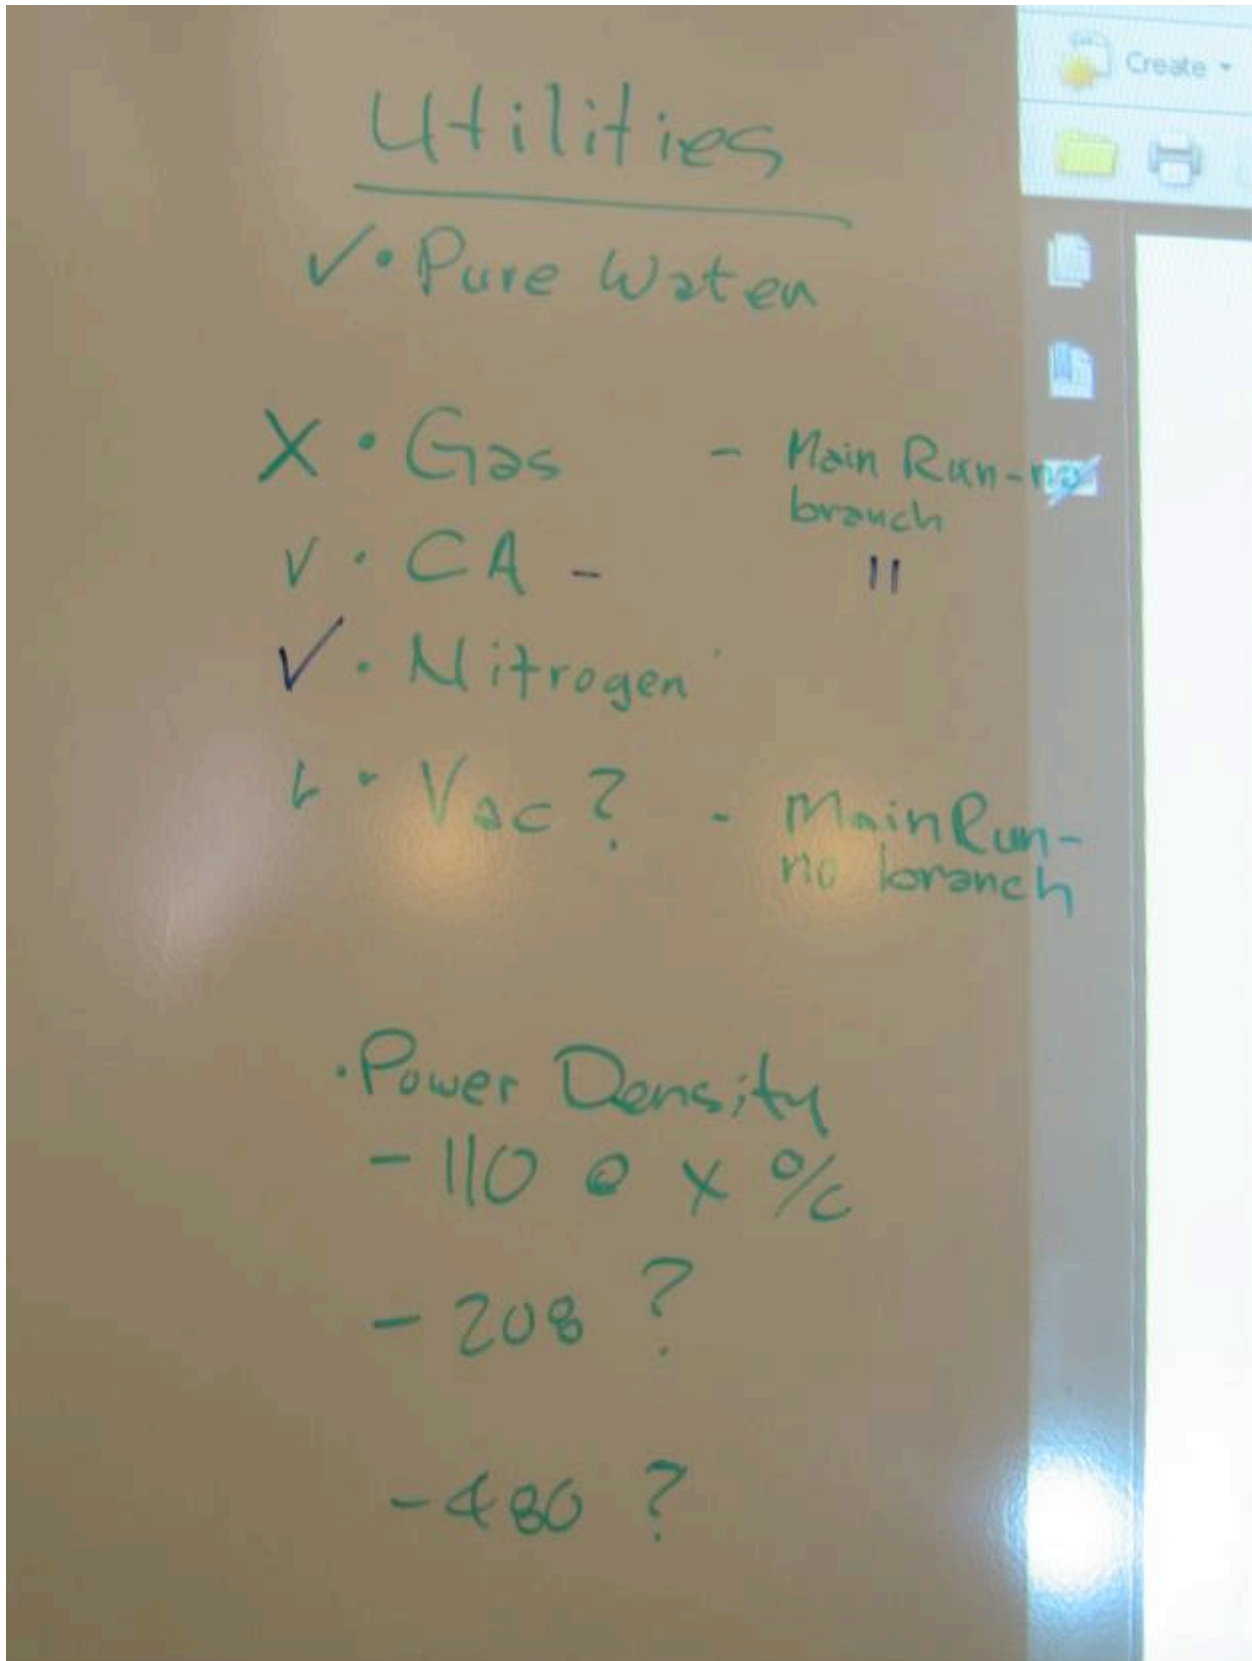 Create
Utilities
✓ • Pure Water
X • Gas - Main Run - no
branch
✓ • CA - "
✓ • Nitrogen
✓ • Vac ? - Main Run -
no branch
• Power Density
- 110 @ x %
- 208 ?
- 480 ?